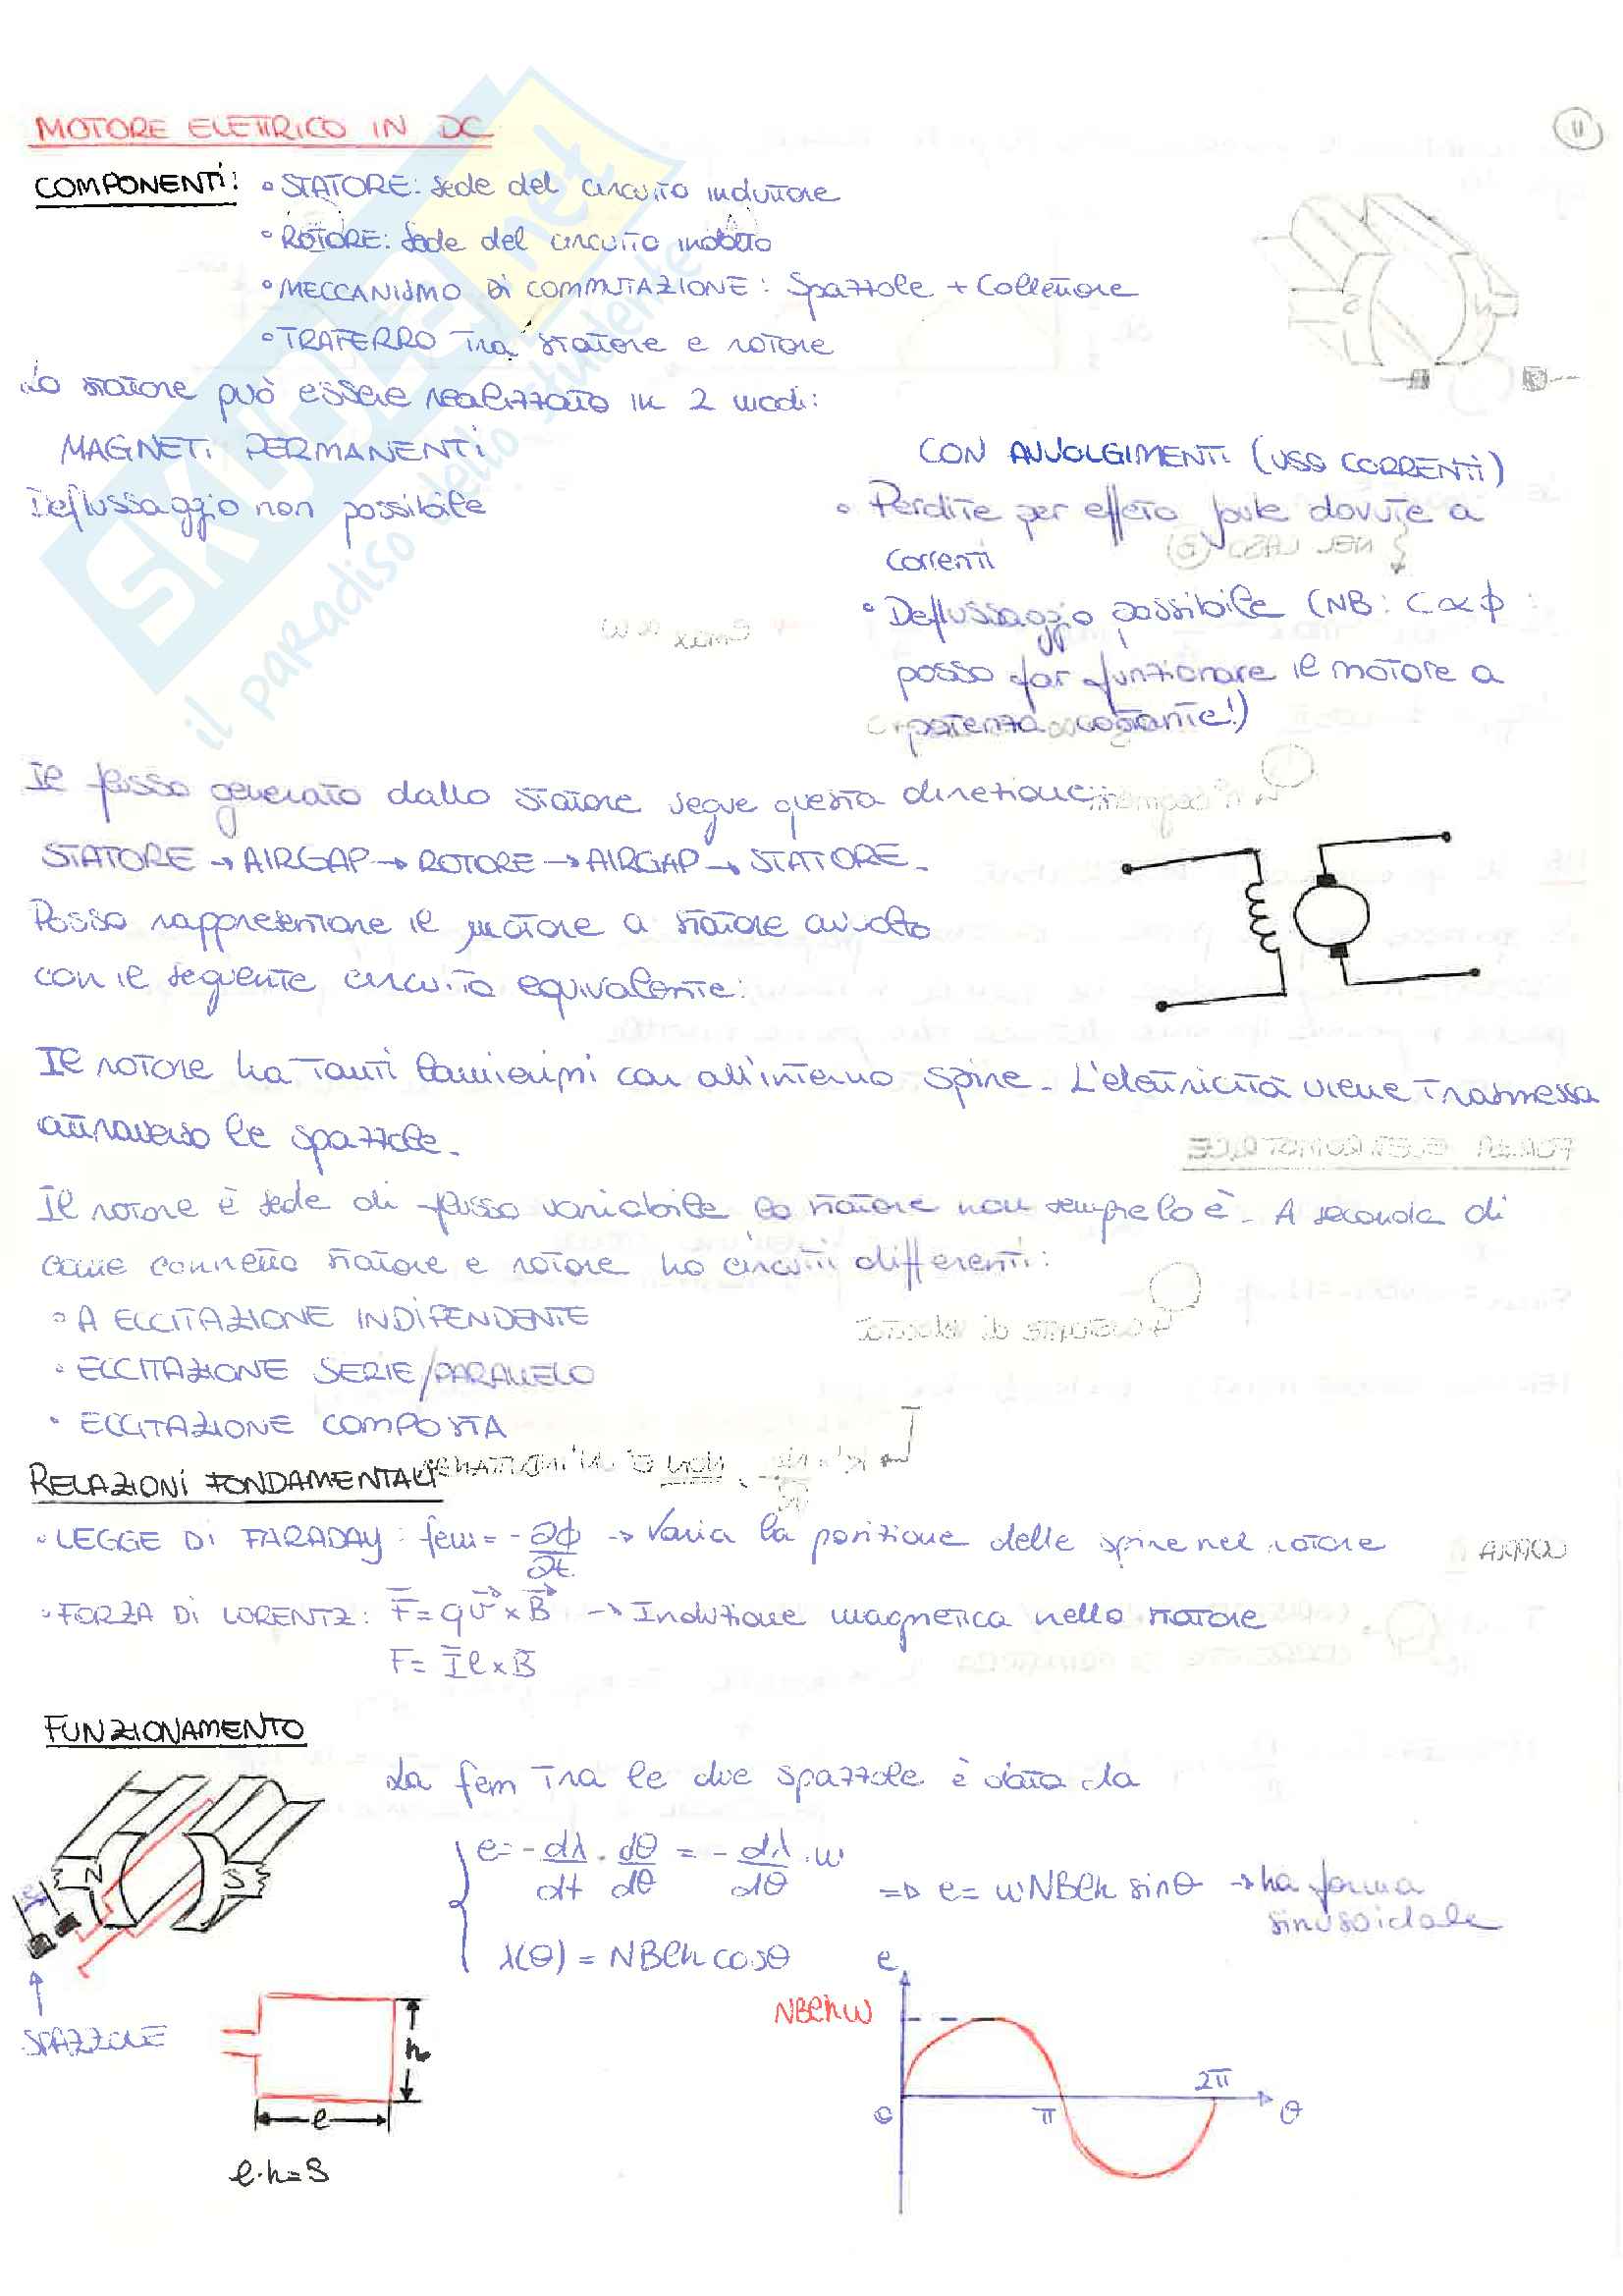 MOTORE ELETTRICO IN DC
11
COMPONENTI: ° STATORE: sede del circuito induttore
° ROTORE: sede del circuito indotto
° MECCANISMO DI COMMUTAZIONE: Spazzole + Collettore
° TRAFERRO tra statore e rotore
Lo statore può essere realizzato in 2 modi:
MAGNETI PERMANENTI
Deflussaggio non possibile
CON AVVOLGIMENTI (USO CORRENTI)
° Perdite per effetto joule dovute a
correnti
° Deflussaggio possibile (NB: C∝ϕ :
posso far funzionare il motore a
potenza costante!)
Il flusso generato dallo statore segue questa direzione:
STATORE → AIRGAP → ROTORE → AIRGAP → STATORE.
Posso rappresentare il motore a statore avvolto
con il seguente circuito equivalente:
Il rotore ha tanti lamierini con all'interno spire. L'elettricità viene trasmessa
attraverso le spazzole.
Il rotore è sede di flusso variabile, lo statore non sempre lo è. A seconda di
come connetto statore e rotore ho circuiti differenti:
° A ECCITAZIONE INDIPENDENTE
° ECCITAZIONE SERIE/PARALLELO
° ECCITAZIONE COMPOSTA
RELAZIONI FONDAMENTALI
° LEGGE DI FARADAY: fem = - ∂ϕ/∂t → Varia la posizione delle spire nel rotore
° FORZA DI LORENTZ: F = qv × B → Induzione magnetica nello statore
F = Il × B
FUNZIONAMENTO
La fem tra le due spazzole è data da
e = - dλ/dt · dθ/dθ = - dλ/dθ · ω
⇒ e = ωNBlh sinθ → ha forma
sinusoidale
λ(θ) = NBlh cosθ
N
S
e
SPAZZOLE
h
l
l·h=S
e
NBlhω
0
π
2π
θ
SKUOLA.net
il paradiso dello studente